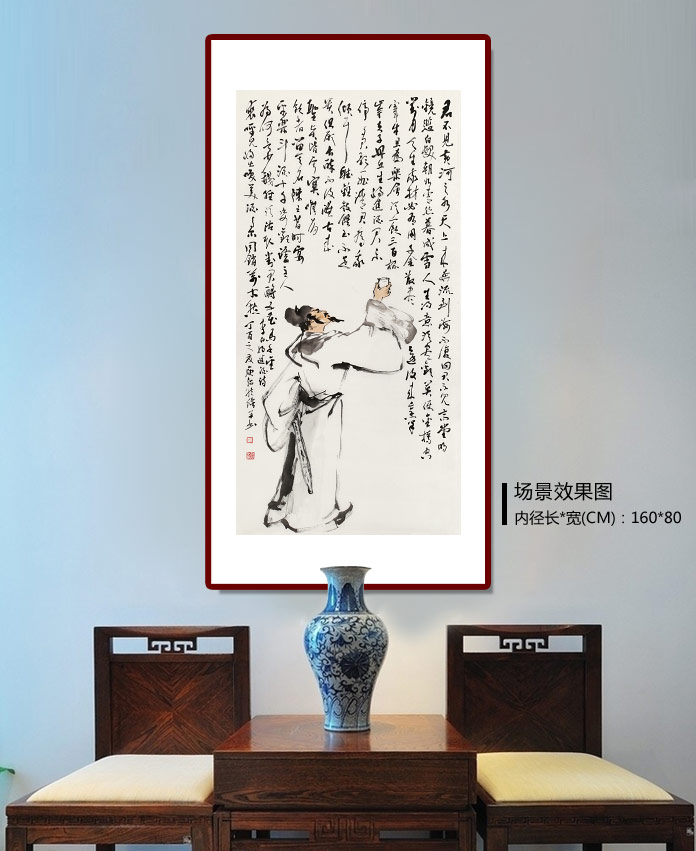 君不見黃河之水天上來奔流到海不復回君不見高堂明
鏡悲白髮朝如青絲暮成雪人生得意須盡歡莫使金樽空
對月天生我材必有用千金散盡還復來烹羊
宰牛且為樂會須一飲三百杯
岑夫子丹丘生將進酒君不
停與君歌一曲請君為我
傾耳聽鐘鼓饌玉不足
貴但願長醉不復醒古來
聖賢皆寂寞惟有
飲者留其名陳王昔時宴
平樂斗酒十千恣歡謔主人
為何言少錢徑須沽取對君酌五花馬千金
裘呼兒將出換美酒與爾同銷萬古愁
李白將進酒詩
丁酉之夏
场景效果图
内径长*宽(CM)：160*80